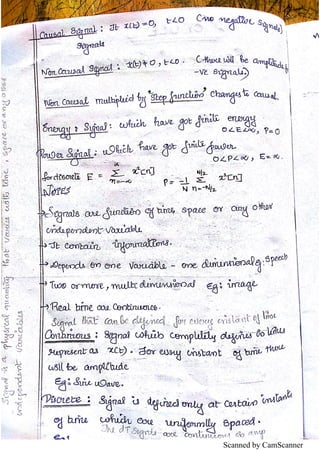 Causal Signal : It x(t)=0, t<0 (no negative signals)
signals
Non Causal Signal : x(t)≠0, t<0. (there will be amplitude for
-ve signals)
Non Causal multiplied by "Step function" changes to causal.
Energy : Signal : which have got finite energy
0<E<∞, P=0
Power Signal : which have got finite power
0<P<∞, E=∞.
for discrete E = ∞ Σ n=-∞ x²[n] P = 1 N N/2 Σ n=-N/2 x²[n]
NOTES
→ Signals are function of time, space or any other
independent variable
→ It contain informations.
→ Depends on one variable - one dimensional eg: speech
→ Two or more, multi dimensional Eg: image
→ Real time are continuous.
Signal that can be defined for every instant of time
Continuous : Signal which completely defines
represent as x(t). For every instant of time there
will be amplitude
Eg: Sine wave.
Discrete : Signal is defined only at certain instants
of time which are uniformly spaced.
Eg: The DT signals are continuous
Signal is a physical quantity that varies with time, space or any other
independent variables
Scanned by CamScanner